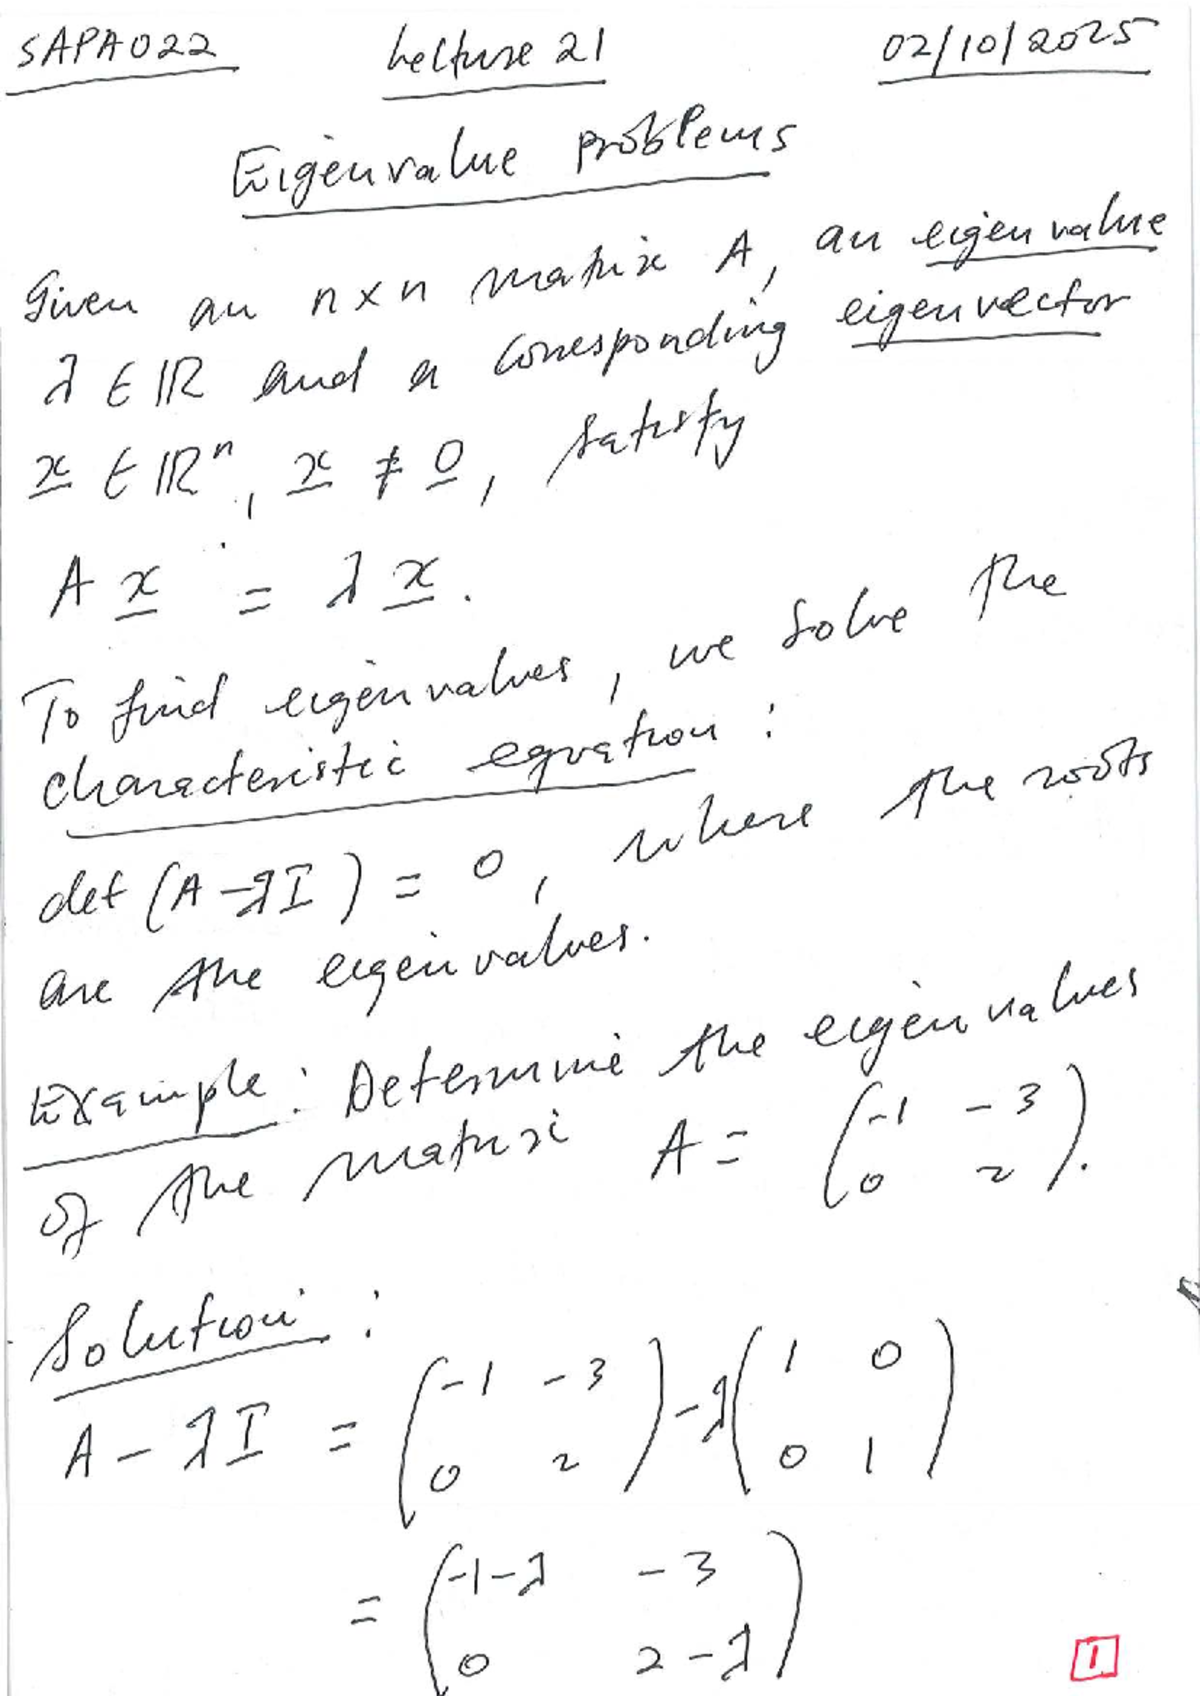 SAPA022 Lecture 21 02/10/2025
Eigenvalue problems
Given an n×n matrix A, an eigenvalue
λ ∈ ℝ and a corresponding eigenvector
x ∈ ℝⁿ, x ≠ 0, satisfy
A x = λ x.
To find eigenvalues, we solve the
characteristic equation:
det (A-λI) = 0, where the roots
are the eigenvalues.
Example: Determine the eigenvalues
of the matrix A = (-1 -3
0 2).
Solution:
A - λI = (-1 -3
0 2) - λ(1 0
0 1)
= (-1-λ -3
0 2-λ)
1